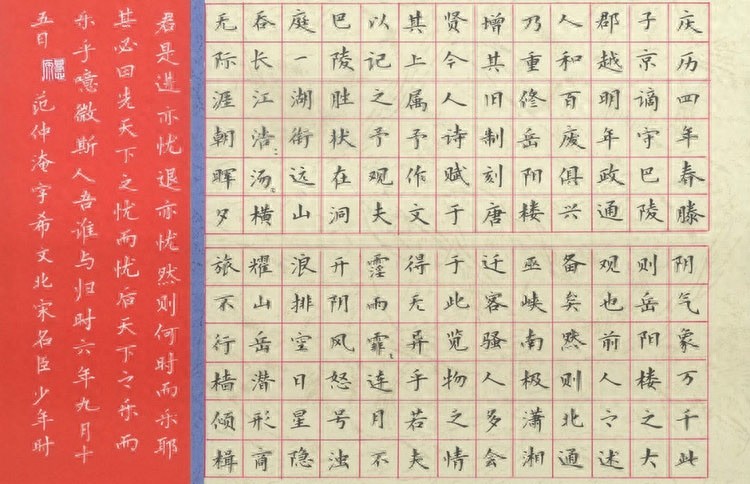 庆历四年春滕
子京谪守巴陵
郡越明年政通
人和百废俱兴
乃重修岳阳楼
增其旧制刻唐
贤今人诗赋于
其上属予作文
以记之予观夫
巴陵胜状在洞
庭一湖衔远山
吞长江浩〻汤〻横
无际涯朝晖夕
阴气象万千此
则岳阳楼之大
观也前人之述
备矣然则北通
巫峡南极潇湘
迁客骚人多会
于此览物之情
得无异乎若夫
霪雨霏〻连月不
开阴风怒号浊
浪排空日星隐
耀山岳潜形商
旅不行樯倾楫
君是进亦忧退亦忧然则何时而乐耶
其必曰先天下之忧而忧后天下之乐而
乐乎噫微斯人吾谁与归时六年九月十
五日 范仲淹字希文北宋名臣少年时